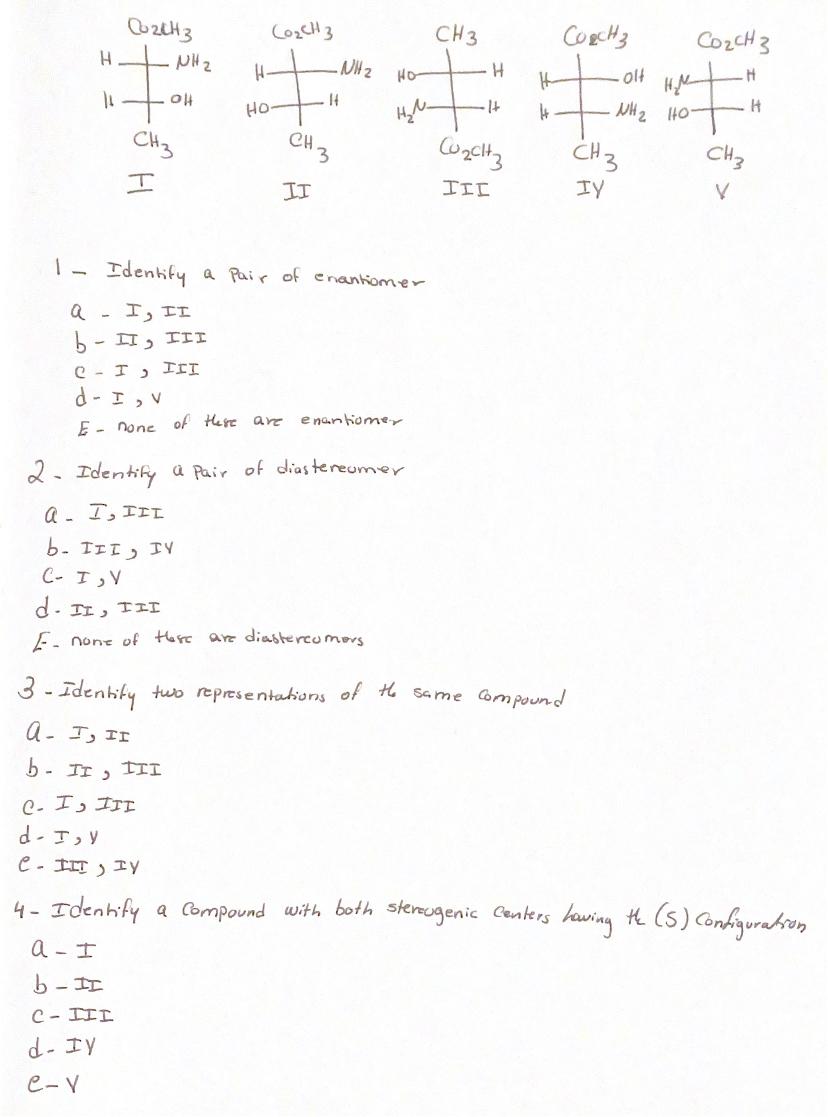 CO2CH3 CO2CH3 CH3 CO2CH3 CO2CH3
H NH2 H NH2 HO H H OH H2N H
H OH HO H H2N H H NH2 HO H
CH3 CH3 CO2CH3 CH3 CH3
I II III IV V
1 - Identify a Pair of enantiomer
a - I, II
b - II, III
c - I, III
d - I, V
E - none of these are enantiomer
2 - Identify a Pair of diastereomer
a - I, III
b - III, IV
C - I, V
d - II, III
E - none of these are diastereomers
3 - Identify two representations of the same Compound
a - I, II
b - II, III
c - I, III
d - I, V
e - III, IV
4 - Identify a Compound with both stereogenic Centers having the (S) Configuration
a - I
b - II
c - III
d - IV
e - V